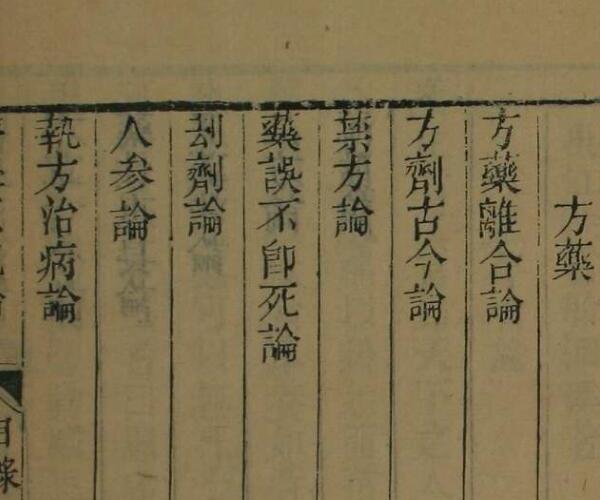 方藥
方藥離合論
方劑古今論
禁方論
藥誤不卽死論
刦劑論
人參論
執方治病論
目錄